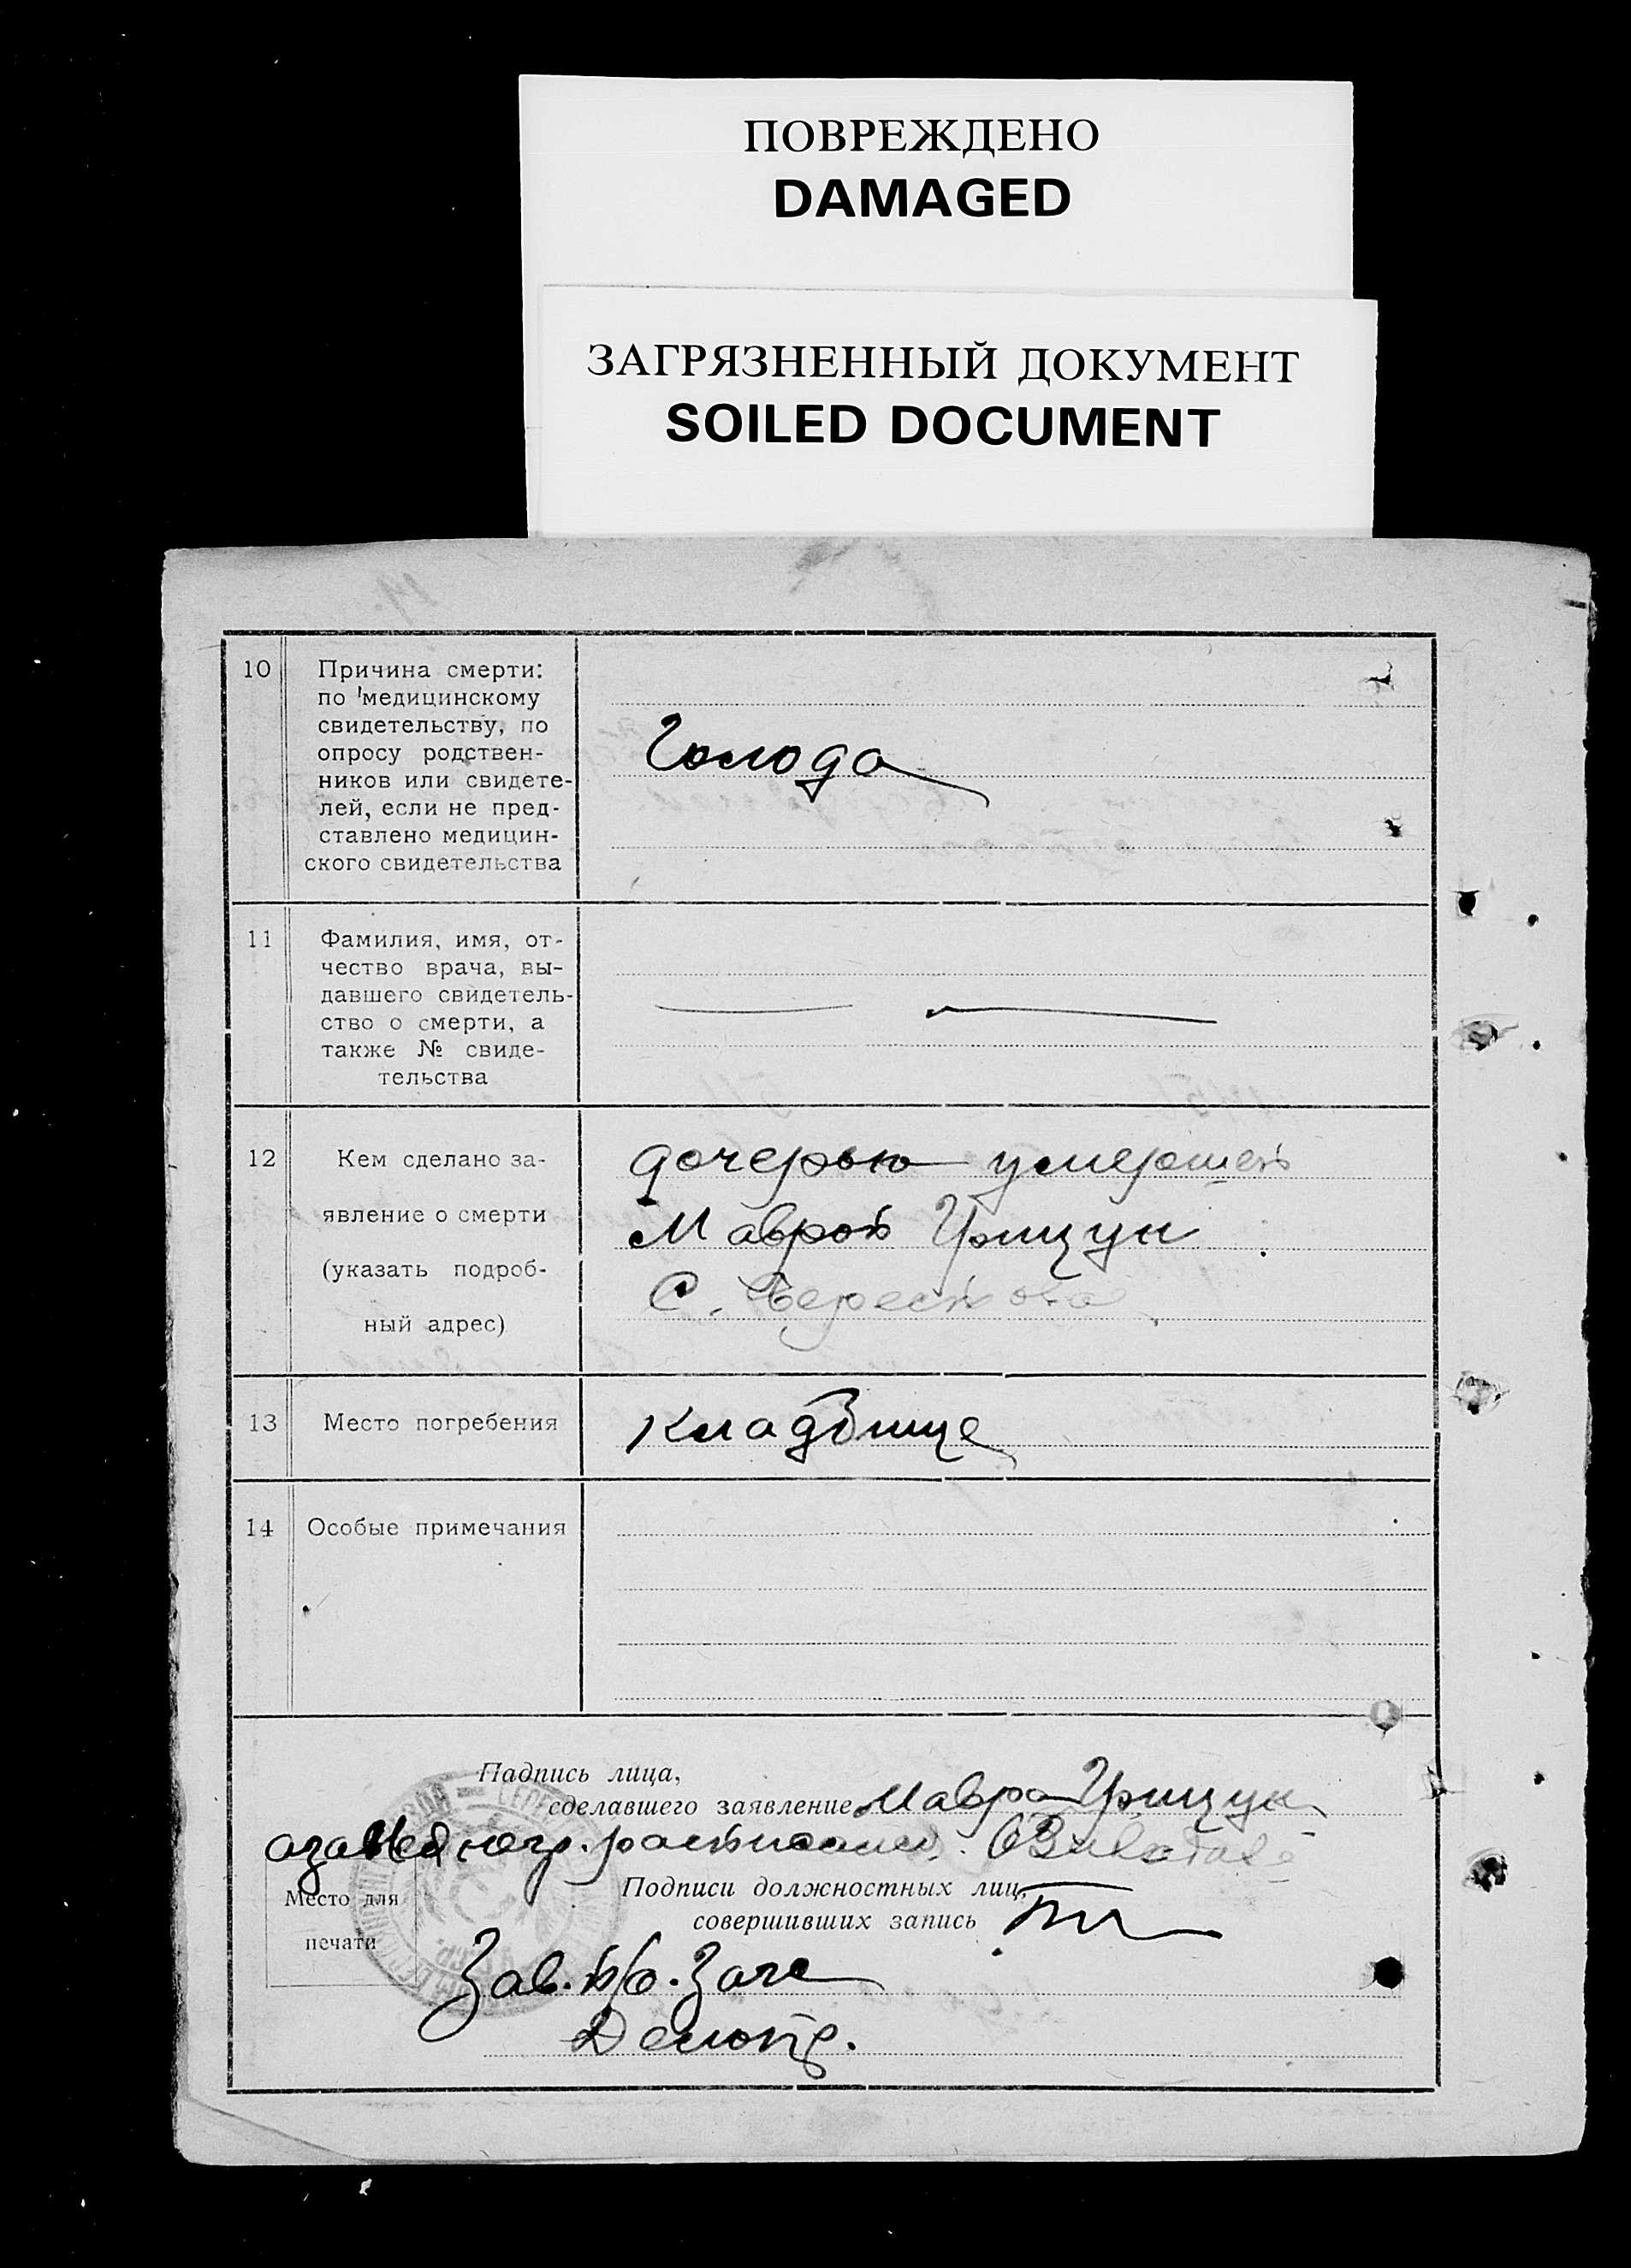 ПОВРЕЖДЕНО
DAMAGED
ЗАГРЯЗНЕННЫЙ ДОКУМЕНТ
SOILED DOCUMENT
10
Причина смерти:
по медицинскому
свидетельству, по
опросу родствен-
ников или свидете-
лей, если не пред-
ставлено медицин-
ского свидетельства
Голода
11
Фамилия, имя, от-
чество врача, вы-
давшего свидетель-
ство о смерти, а
также № свиде-
тельства
12
Кем сделано за-
явление о смерти
(указать подроб-
ный адрес)
дочерью умершей
Маврой Грицун
С.
13
Место погребения
кладбище
14
Особые примечания
Падпись лица,
сделавшего заявление Мавра Грицун
Подписи должностных лиц,
совершивших запись
Место для
печати
Зав.